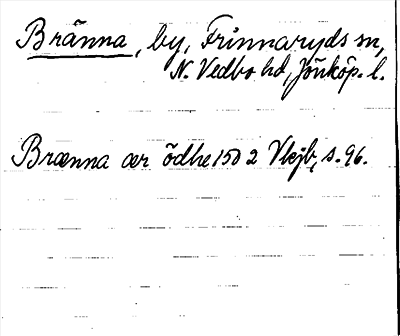 Bränna, by, Frinnaryds sn,
N. Vedbo hd, Jönköp. l.
Brænna ær ödhe 1502 Vkjb, s. 96.